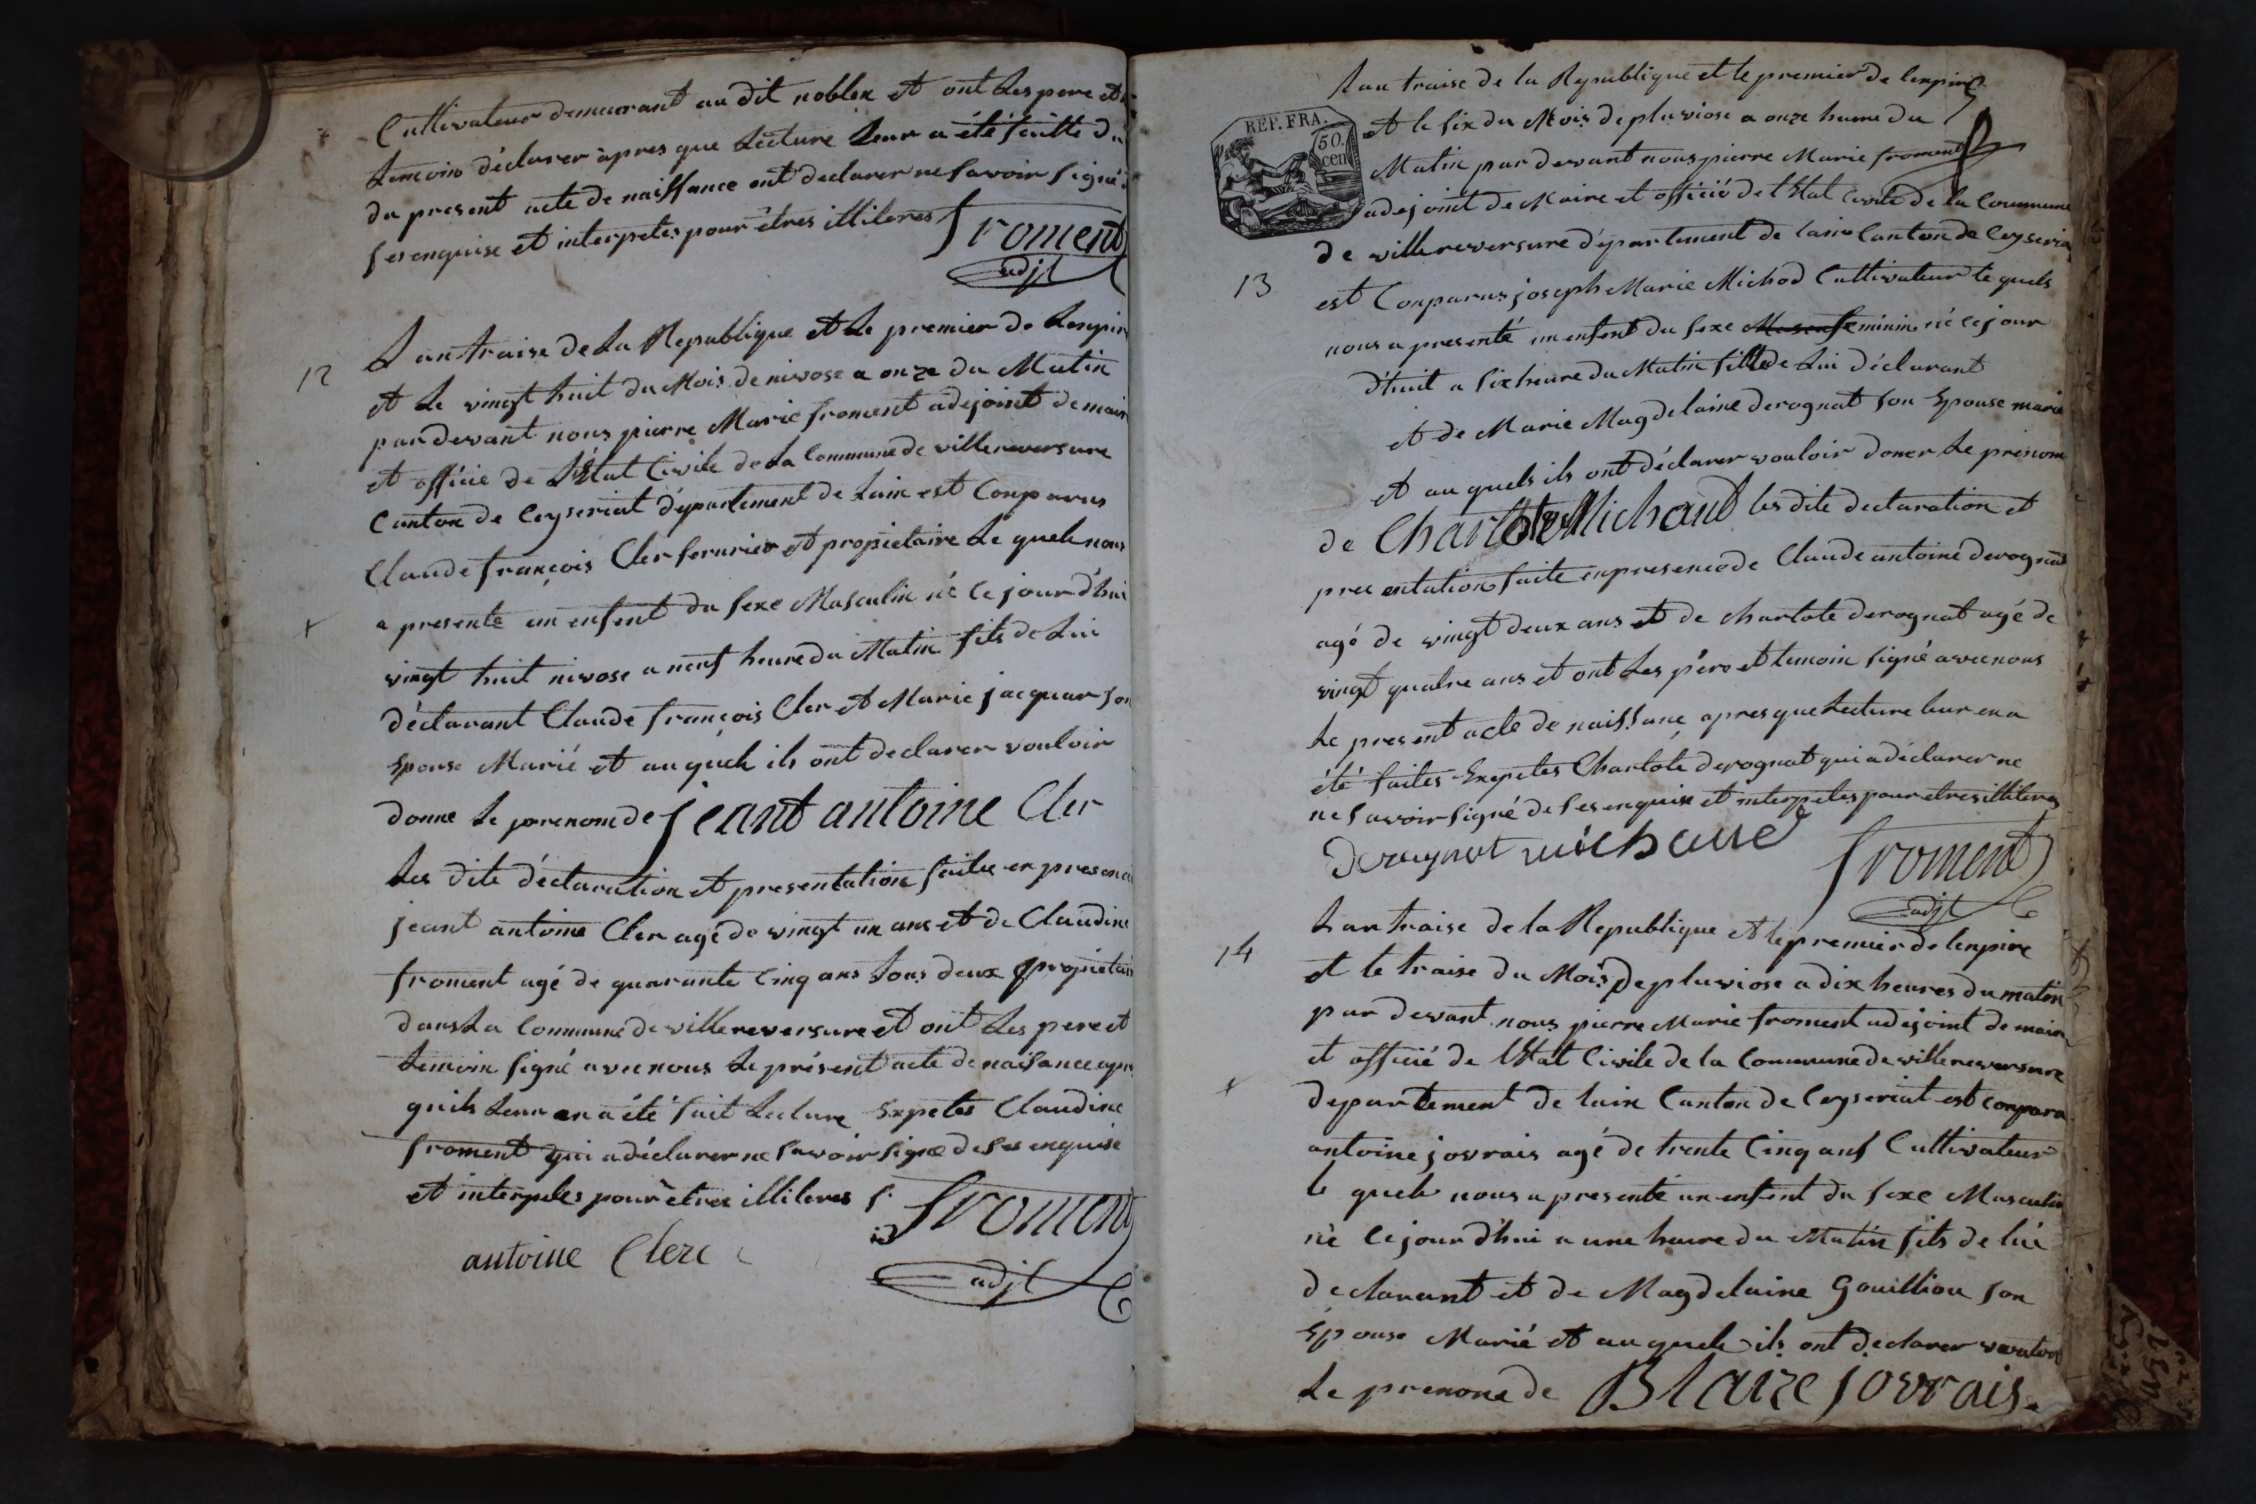 Cultivateur demeurant au dit noblen et ont Les pere et
temoins déclarer àpres que Lecture Leur a été faitte du
du present acte de naissance ont declarer ne savoir signé
ses enquise et interpetes pour êtres illiteres froment
adjt
12
L an traise de La Republique et Le premier de Lenpire
et Le vingt huit du Mois de nivose a onze du Matin
par devant nous pierre Marie froment adejoint de maire
et officié de L'Etat Civile de La Commune de villereversure
Canton de Ceyseriat département de Lain est Conparus
Claude françois Cler serurier et propietaire Le quels nous
a presenté un enfent du sexe Masculin né Ce jour d'hui
vingt huit nivose a neuf heure du Matin fils de Lui
déclarant Claude françois Cler et Marie jacquar son
Epouse Marié et au quels ils ont declarer vouloir
donne Le prenome de jeant antoine Cler
Les dite déclaration et presentation faites en presence
jeant antoine Cler agé de vingt un ans et de Claudine
froment agé de quarante Cinq ans tous deux propietair
dans La Commune de villereversure et ont Les pere et
temoin signé avec nous Le présent acte de naissance apre
quils Leur en a été fait Lecture Expetes Claudine
froment qui a déclarer ne savoir signe de ses enquise
et interpeles pour êtres illiteres f.
froment
antoine Clerc
adjt
L an traise de la Republique et le premier de lenpire
REP. FRA.
50.
cen
et le six du Mois de pluviose a onze heure du
Matin par devant nous pierre Marie froment
adejoint de Maire et officié de l'Etat Civile de la Commune
de villereversure département de lain Canton de Ceyseria
13
est Conparus joseph Marie Michod Cultivateur le quels
nous a presenté un enfent du sexe Mascufeminin né ce jour
d'huit a six heure du Matin fille de Lui déclarant
et de Marie Magdelaine derognat son Epouse marie
et au quels ils ont déclarer vouloir doner Le prenom
de Charlote Michaud les dite declaration et
presentation faite en presence de Claude antoine derognat
agé de vingt deux ans et de charlote derognat agé de
vingt quatre ans et ont Les pére et temoin signé avec nous
Le present acte de naissanc apres que Lecture leur en a
été faites Expetes Charlote derognat qui a déclarer ne
ne savoir signé de ses enquise et interpetes pour etres illiteres
Derognat michaud
froment
adjt
14
L an traise de la Republique et le premier de lenpire
et le traise du Mois de pluviose a dix heures du matin
par devant nous pierre Marie froment adejoint de maire
et officié de l'Etat Civile de la Commune de villereversure
departement de lain Canton de Ceyseriat est conparu
antoine jovrais agé de trente Cinq ans Cultivateur
le quels nous a presenté un enfent du sexe Masculin
né Ce jour d'hui a une heure du Matin fils de lui
declarant et de Magdelaine Gouilliou son
Epouse Marié et au quels ils ont declarer vouloir
Le prenome de Blaize jovrais.